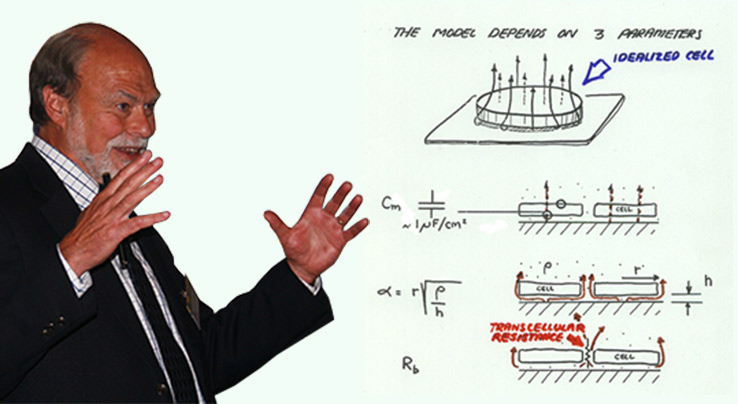 THE MODEL DEPENDS ON 3 PARAMETERS
IDEALIZED CELL
Cm
~ 1μF/cm²
CELL
α = r√ρ/h
ρ r h
CELL
TRANSCELLULAR
RESISTANCE
Rb
CELL